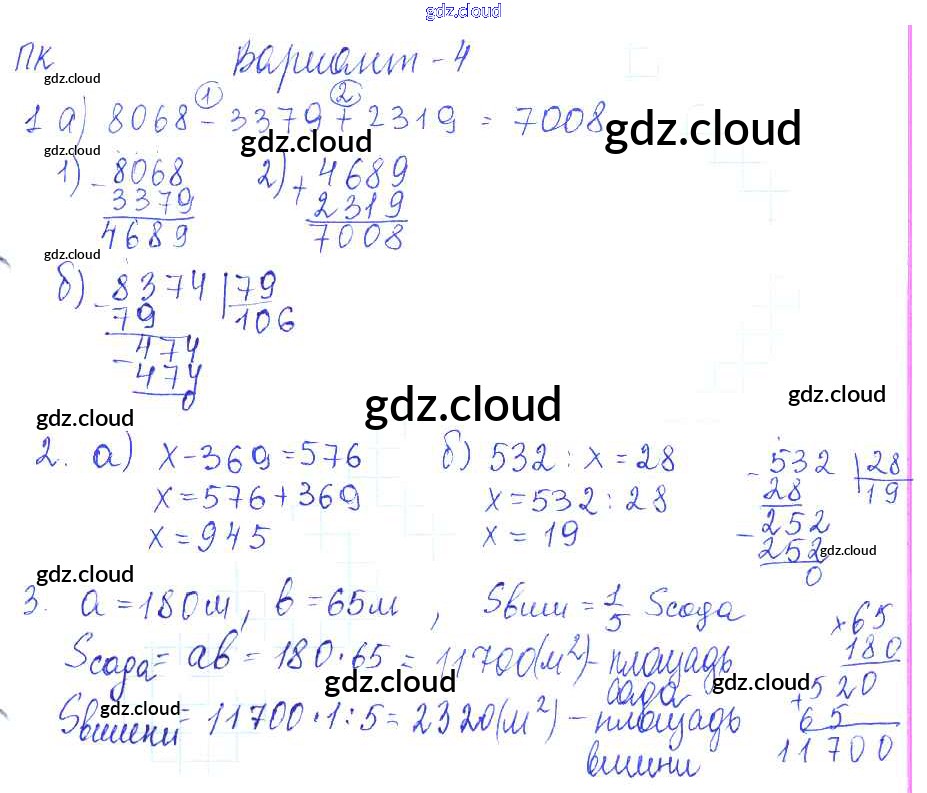 gdz.cloud
ПК Вариант - 4
gdz.cloud
① ②
1 а) 8068 - 3379 + 2319 = 7008
gdz.cloud
gdz.cloud gdz.cloud
1) - 8068 2) + 4689
3379 2319
4689 7008
gdz.cloud
б) - 8374 | 79
79 106
- 474
474
0
gdz.cloud gdz.cloud gdz.cloud
2. а) x - 369 = 576 б) 532 : x = 28 - 532 | 28
x = 576 + 369 x = 532 : 28 28 19
x = 945 x = 19 - 252
252 gdz.cloud
0
gdz.cloud
3. a = 180м, b = 65м, Sвиш = 1/5 Sсада × 65
Sсада = ab = 180 · 65 = 11700(м²) - площадь 180
сада + 520
gdz.cloud gdz.cloud gdz.cloud
Sвишени = 11700 · 1 : 5 = 2320(м²) - площадь 65
вишни 11700